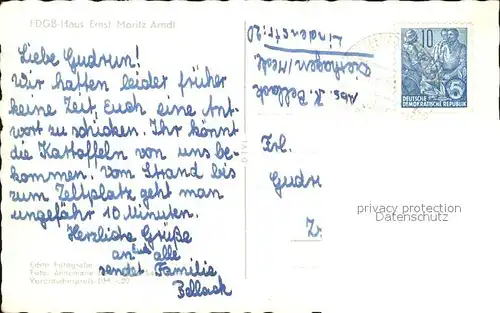 FDGB-Haus Ernst Moritz Arndt
Liebe Gudrun!
Wir hatten leider früher
keine Zeit, Euch eine Ant-
wort zu schicken. Ihr könnt
die Kartoffeln von uns be-
kommen. Vom Strand bis
zum Zeltplatz geht man
ungefähr 10 Minuten.
Herzliche Grüße
an Euch alle
sendet Familie
Bellack
Abs. K. Bellack
Lindenstr. 20
10
DEUTSCHE
DEMOKRATISCHE REPUBLIK
Frl.
Gudr
privacy protection
Datenschutz